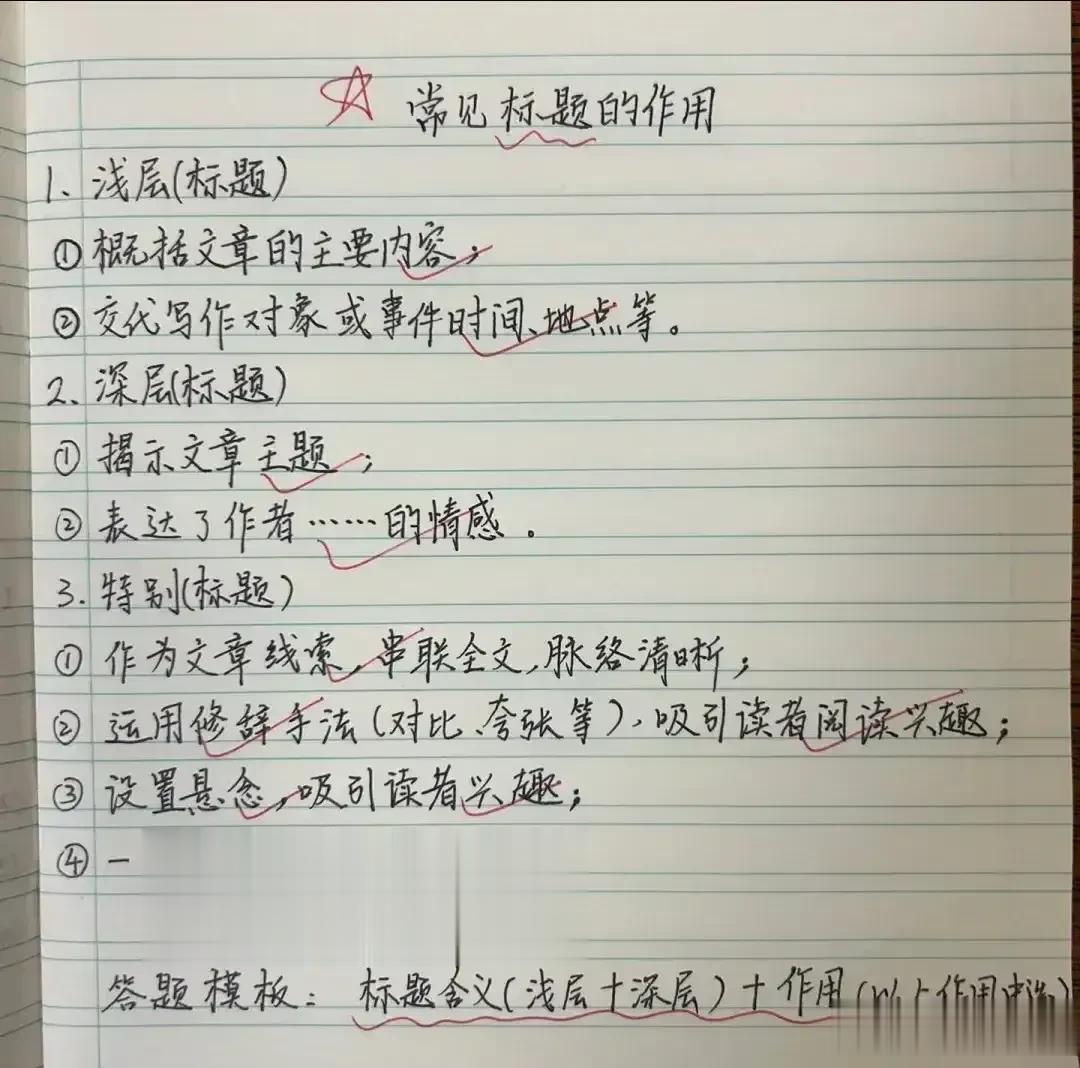 常见标题的作用
1、浅层(标题)
①概括文章的主要内容；
②交代写作对象或事件时间、地点等。
2、深层(标题)
①揭示文章主题；
②表达了作者……的情感。
3.特别(标题)
①作为文章线索，串联全文，脉络清晰；
②运用修辞手法(对比、夸张等)，吸引读者阅读兴趣；
③设置悬念，吸引读者兴趣；
④一
答题模板：标题含义(浅层+深层)+作用(以上作用中选)